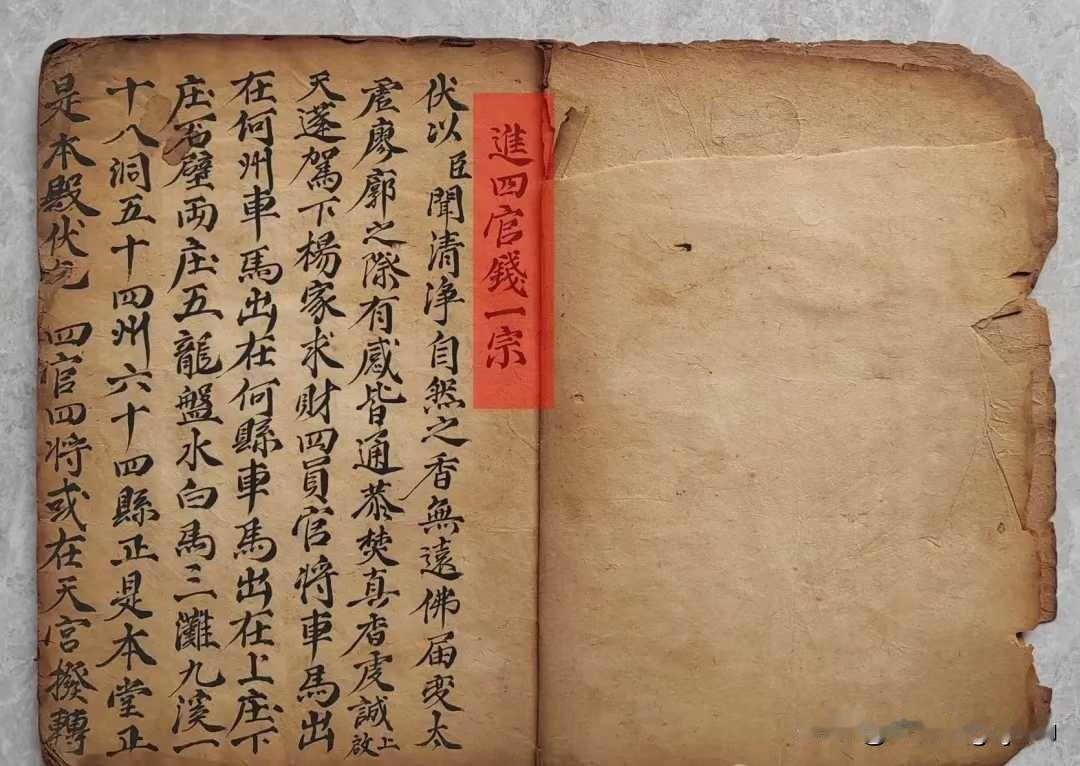 進四官錢一宗
伏以臣聞清淨自然之香無遠佛届变太
虗廖廓之際有感皆通恭焚真香虔誠上啟
天蓬駕下楊家求財四員官将車馬出
在何州車馬出在何縣車馬出在上庄下
庄石壁兩庄五龍盤水白馬三灘九溪一
十八洞五十四州六十四縣正是本堂正
是本殿伏 四官四将或在天宮撥轉